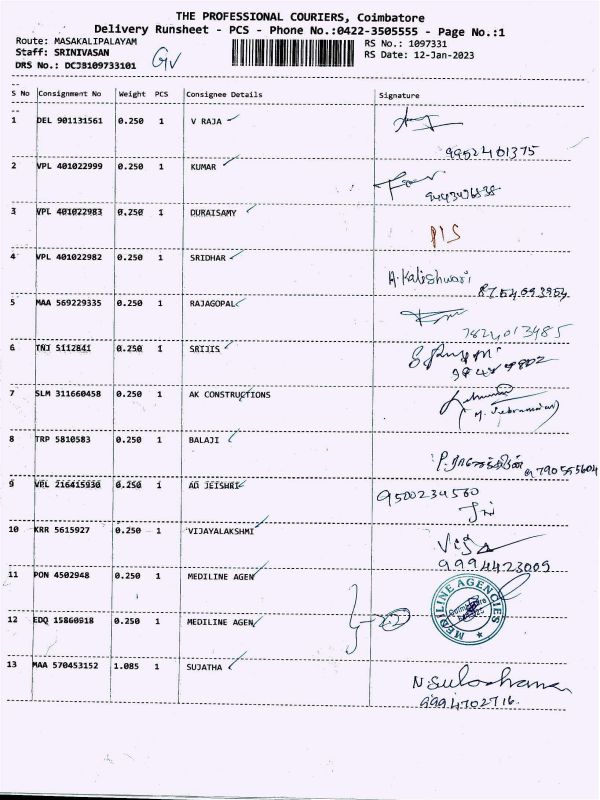 THE PROFESSIONAL COURIERS, Coimbatore
Delivery Runsheet - PCS - Phone No.:0422-3505555 - Page No.:1
Route: MASAKALIPALAYAM
Staff: SRINIVASAN
DRS No.: DCJB109733101
RS No.: 1097331
RS Date: 12-Jan-2023
S No Consignment No Weight PCS Consignee Details Signature
1 DEL 901131561 0.250 1 V RAJA
9952401375
2 VPL 401022999 0.250 1 KUMAR
3 VPL 401022983 0.250 1 DURAISAMY
4 VPL 401022982 0.250 1 SRIDHAR
A.Kalishwari
5 MAA 569229335 0.250 1 RAJAGOPAL
7824013485
6 TNJ 5112841 0.250 1 SRIJIS
7 SLM 311660458 0.250 1 AK CONSTRUCTIONS
8 TRP 5810583 0.250 1 BALAJI
9 VPL 216415930 0.250 1 AD JEISHRI
9500234560
10 KRR 5615927 0.250 1 VIJAYALAKSHMI
9994423009
11 PON 4502948 0.250 1 MEDILINE AGEN
MEDILINE AGENCIES
12 EDQ 15860918 0.250 1 MEDILINE AGEN
13 MAA 570453152 1.085 1 SUJATHA
N.Sulochana
9994702716.